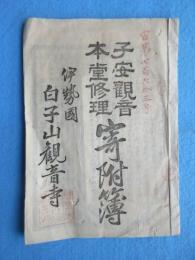 子安觀音
本堂修理
寄附簿
伊勢國
白子山觀音寺